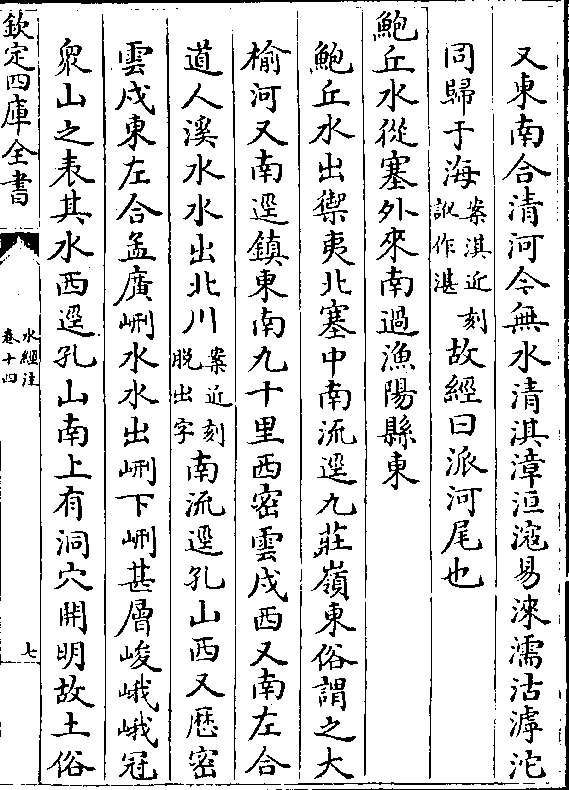 又東南合清河今無水清淇漳洹滱易淶濡沽滹沱
同歸于海案淇近刻訛作湛故經曰派河尾也
鮑丘水從塞外來南過漁陽縣東
鮑丘水出禦夷北塞中南流逕九莊嶺東俗謂之大
榆河又南逕鎮東南九十里西密雲戍西又南左合
道人溪水水出北川案近刻脫出字南流逕孔山西又歴密
雲戍東左合孟廣𡶴水水出𡶴下𡶴甚層峻峨峨冠
衆山之表其水西逕孔山南上有洞穴開明故土俗
欽定四庫全書
水經注
卷十四
七